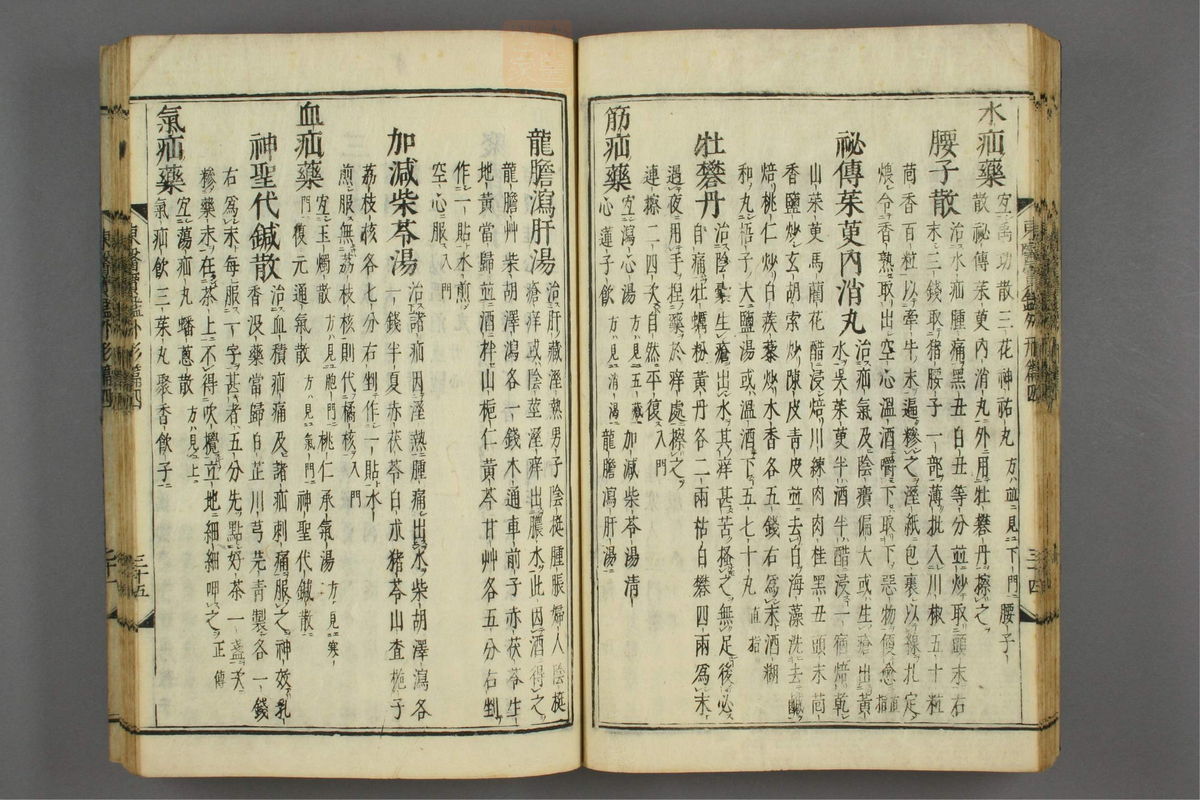 水疝藥 宜禹功散三花神祐丸 方並見下門 腰子
散祕傳茱萸內消丸外用牡礬丹擦之
腰子散 治水疝腫痛黑丑白丑等分並炒取頭末右
三錢取猪腰子一部薄批入川椒五十粒
茴香百粒以牽牛末遍糝之溼紙包裹以線扎定
煨令香熟取出空心溫酒嚼下取下惡物便愈 直指
祕傳茱萸內消丸 治疝氣及陰㿗偏大或生瘡出黃
水吳茱萸半酒半醋浸一宿焙乾
山茱萸馬藺花醋浸焙川練肉肉桂黑丑頭末茴
香鹽炒玄胡索炒陳皮青皮並去白海藻洗去鹹
焙桃仁炒白蒺藜炒木香各五錢右爲末酒糊
和丸梧子大鹽湯或溫酒下五七十丸 直指
牡礬丹 治陰囊生瘡出水其痒甚苦搔之無足後必
自痛牡蠣粉黃丹各二兩枯白礬四兩爲末
遇夜用手捏藥於痒處擦之
連擦三四次自然平復 入門
筋疝藥 宜瀉心湯 方見五藏 加減柴苓湯清
心蓮子飮 方見消渴 龍膽瀉肝湯
東醫寶鑑外形篇四
三十四
龍膽瀉肝湯 治肝藏溼熱男子陰挺腫脹婦人陰挺
瘡痒或陰莖溼痒出膿水此因酒得之
龍膽艸柴胡澤瀉各一錢木通車前子赤茯苓生
地黃當歸並酒拌山梔仁黃芩甘艸各五分右剉
作一貼水煎
空心服 入門
加減柴苓湯 治諸疝因溼熱腫痛出水柴胡澤瀉各
一錢半夏赤茯苓白朮猪苓山査梔子
荔枝核各七分右剉作一貼水
煎服無荔枝核則代橘核 入門
血疝藥 宜玉燭散 方見胞門 桃仁承氣湯 方見寒
門 復元通氣散 方見氣門 神聖代鍼散
神聖代鍼散 治血積疝痛及諸疝刺痛服之神效乳
香沒藥當歸白芷川芎芫青製各一錢
右爲末每服一字甚者五分先點好茶一盞次
糝藥末在茶上不得吹攪立地細細呷之 正傳
氣疝藥 宜蕩疝丸蟠蔥散 方見上
氣疝飮三茱丸聚香飮子
東醫寶鑑外形篇四
三十五